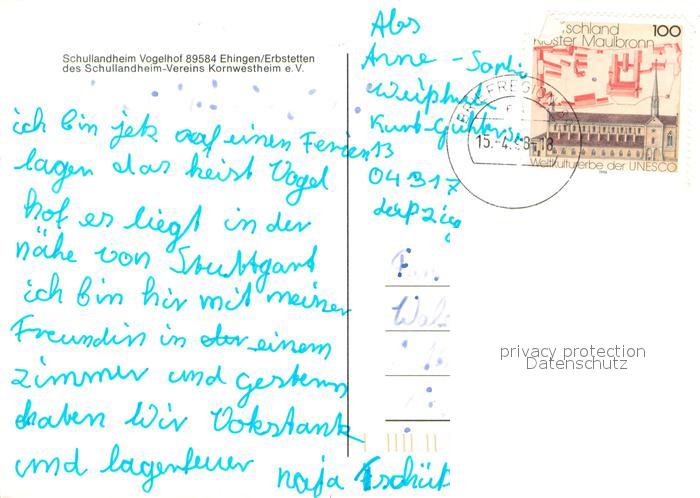 Schullandheim Vogelhof 89584 Ehingen/Erbstetten
des Schullandheim-Vereins Kornwestheim e.V.
ich bin jetz auf einen Ferien
lagen das heist Vogel
hof es liegt in der
nähe von Stuttgart
ich bin hir mit meiner
Freundin in einem
zimmer und gestern
haben Wir Vokstank
und lagerfeuer naja Tschüß
Abs
Anne-Sophi
Kurt-Günther
13
04317
schland
Kloster Maulbronn
100
15.-4.98-18
Weltkulturerbe der UNESCO
privacy protection
Datenschutz